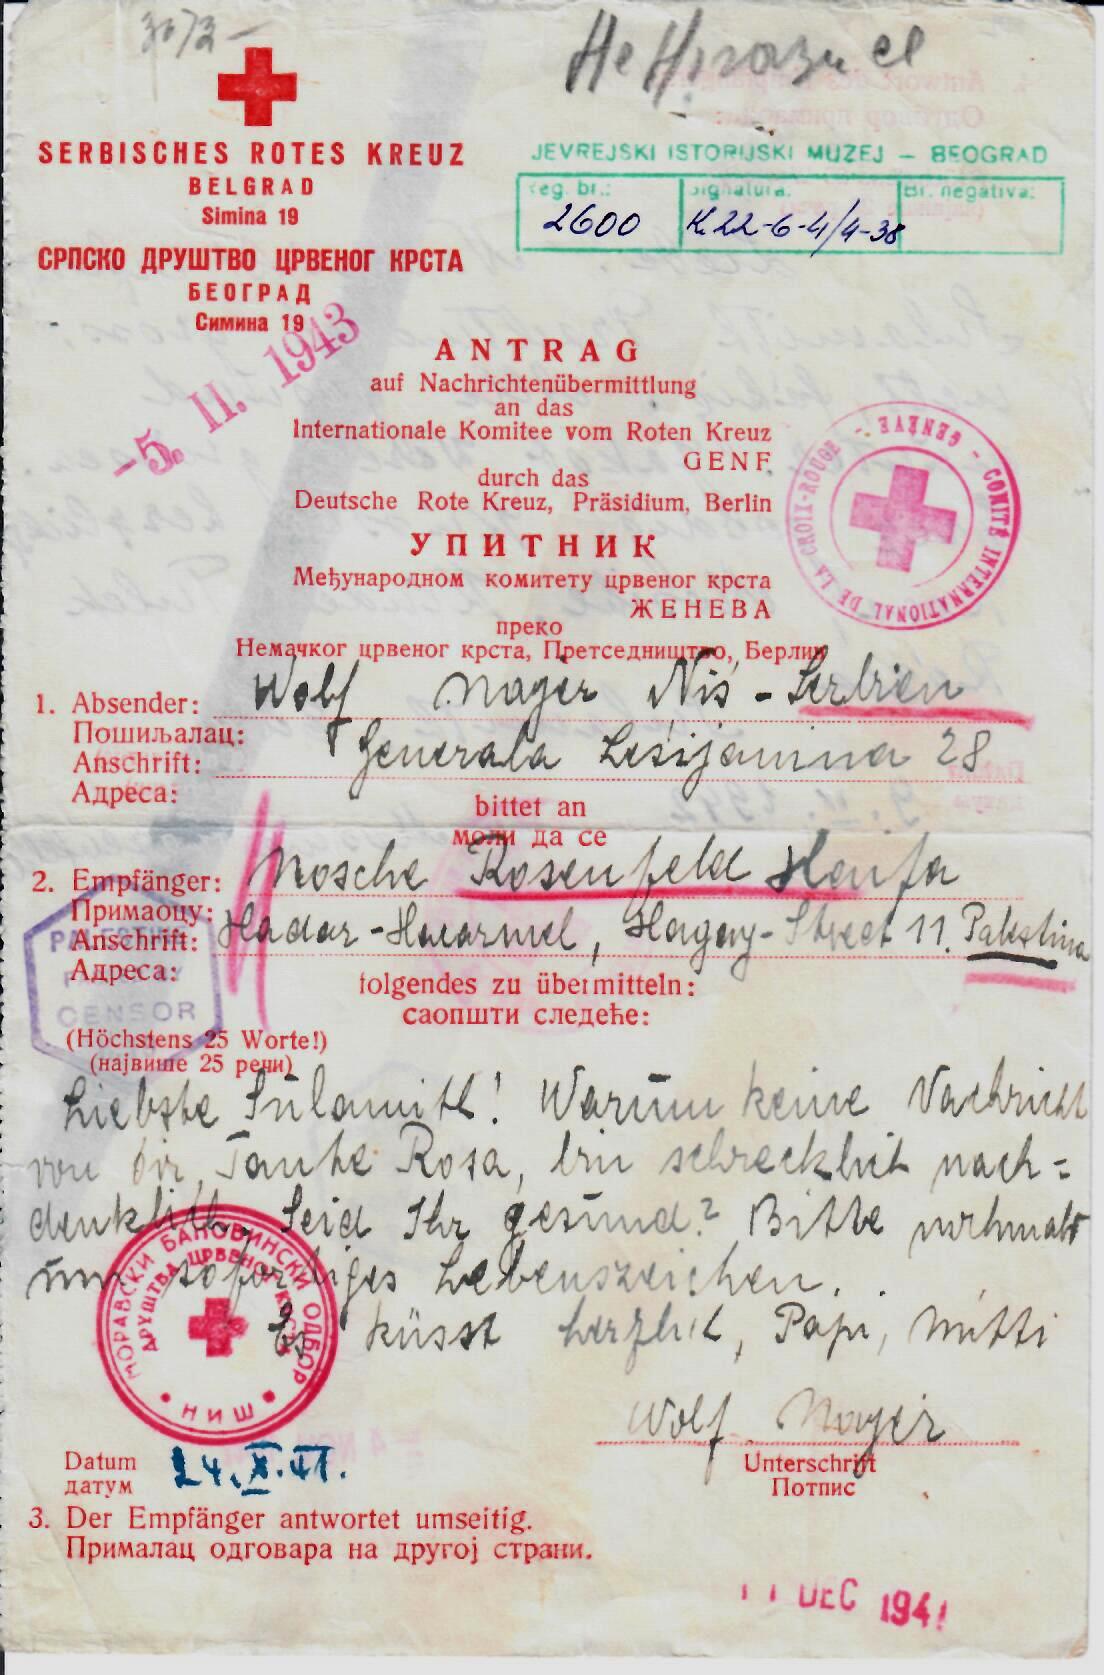 3073-
SERBISCHES ROTES KREUZ
BELGRAD
Simina 19
СРПСКО ДРУШТВО ЦРВЕНОГ КРСТА
БЕОГРАД
Симина 19
JEVREJSKI ISTORIJSKI MUZEJ – BEOGRAD
Reg. br.: Signatura: Br. negativa:
2600 K.22-6-4/4-38
-5. II. 1943
ANTRAG
auf Nachrichtenübermittlung
an das
Internationale Komitee vom Roten Kreuz
GENF
durch das
Deutsche Rote Kreuz, Präsidium, Berlin
COMITÉ INTERNATIONAL DE LA CROIX-ROUGE – GENÈVE –
УПИТНИК
Међународном комитету црвеног крста
ЖЕНЕВА
преко
Немачког црвеног крста, Претседништво, Берлин
1. Absender: Wolf Majer Niš - Serbien
Пошиљалац:
Anschrift: Generala Lešijanina 28
Адреса:
bittet an
моли да се
2. Empfänger: Mosche Rosenfeld Haifa
Примаоцу:
Anschrift: Hadar-Hacarmel, Hagay-Street 11. Palestina
Адреса:
CENSOR
folgendes zu übermitteln:
саопшти следеће:
(Höchstens 25 Worte!)
(највише 25 речи)
Liebste Sulamith! Warum keine Nachricht
von dir, Tante Rosa, bin schrecklich nach-
denklich. Seid Ihr gesund? Bitte nochmals
um sofortiges Lebenszeichen.
Es küsst herzlich, Papi, Mutti
Wolf Majer
МОРАВСКИ БАНОВИНСКИ ОДБОР
ДРУШТВА ЦРВЕНОГ КРСТА
НИШ
Datum 24.X.41.
датум
Unterschrift
Потпис
3. Der Empfänger antwortet umseitig.
Прималац одговара на другој страни.
11 DEC 1941